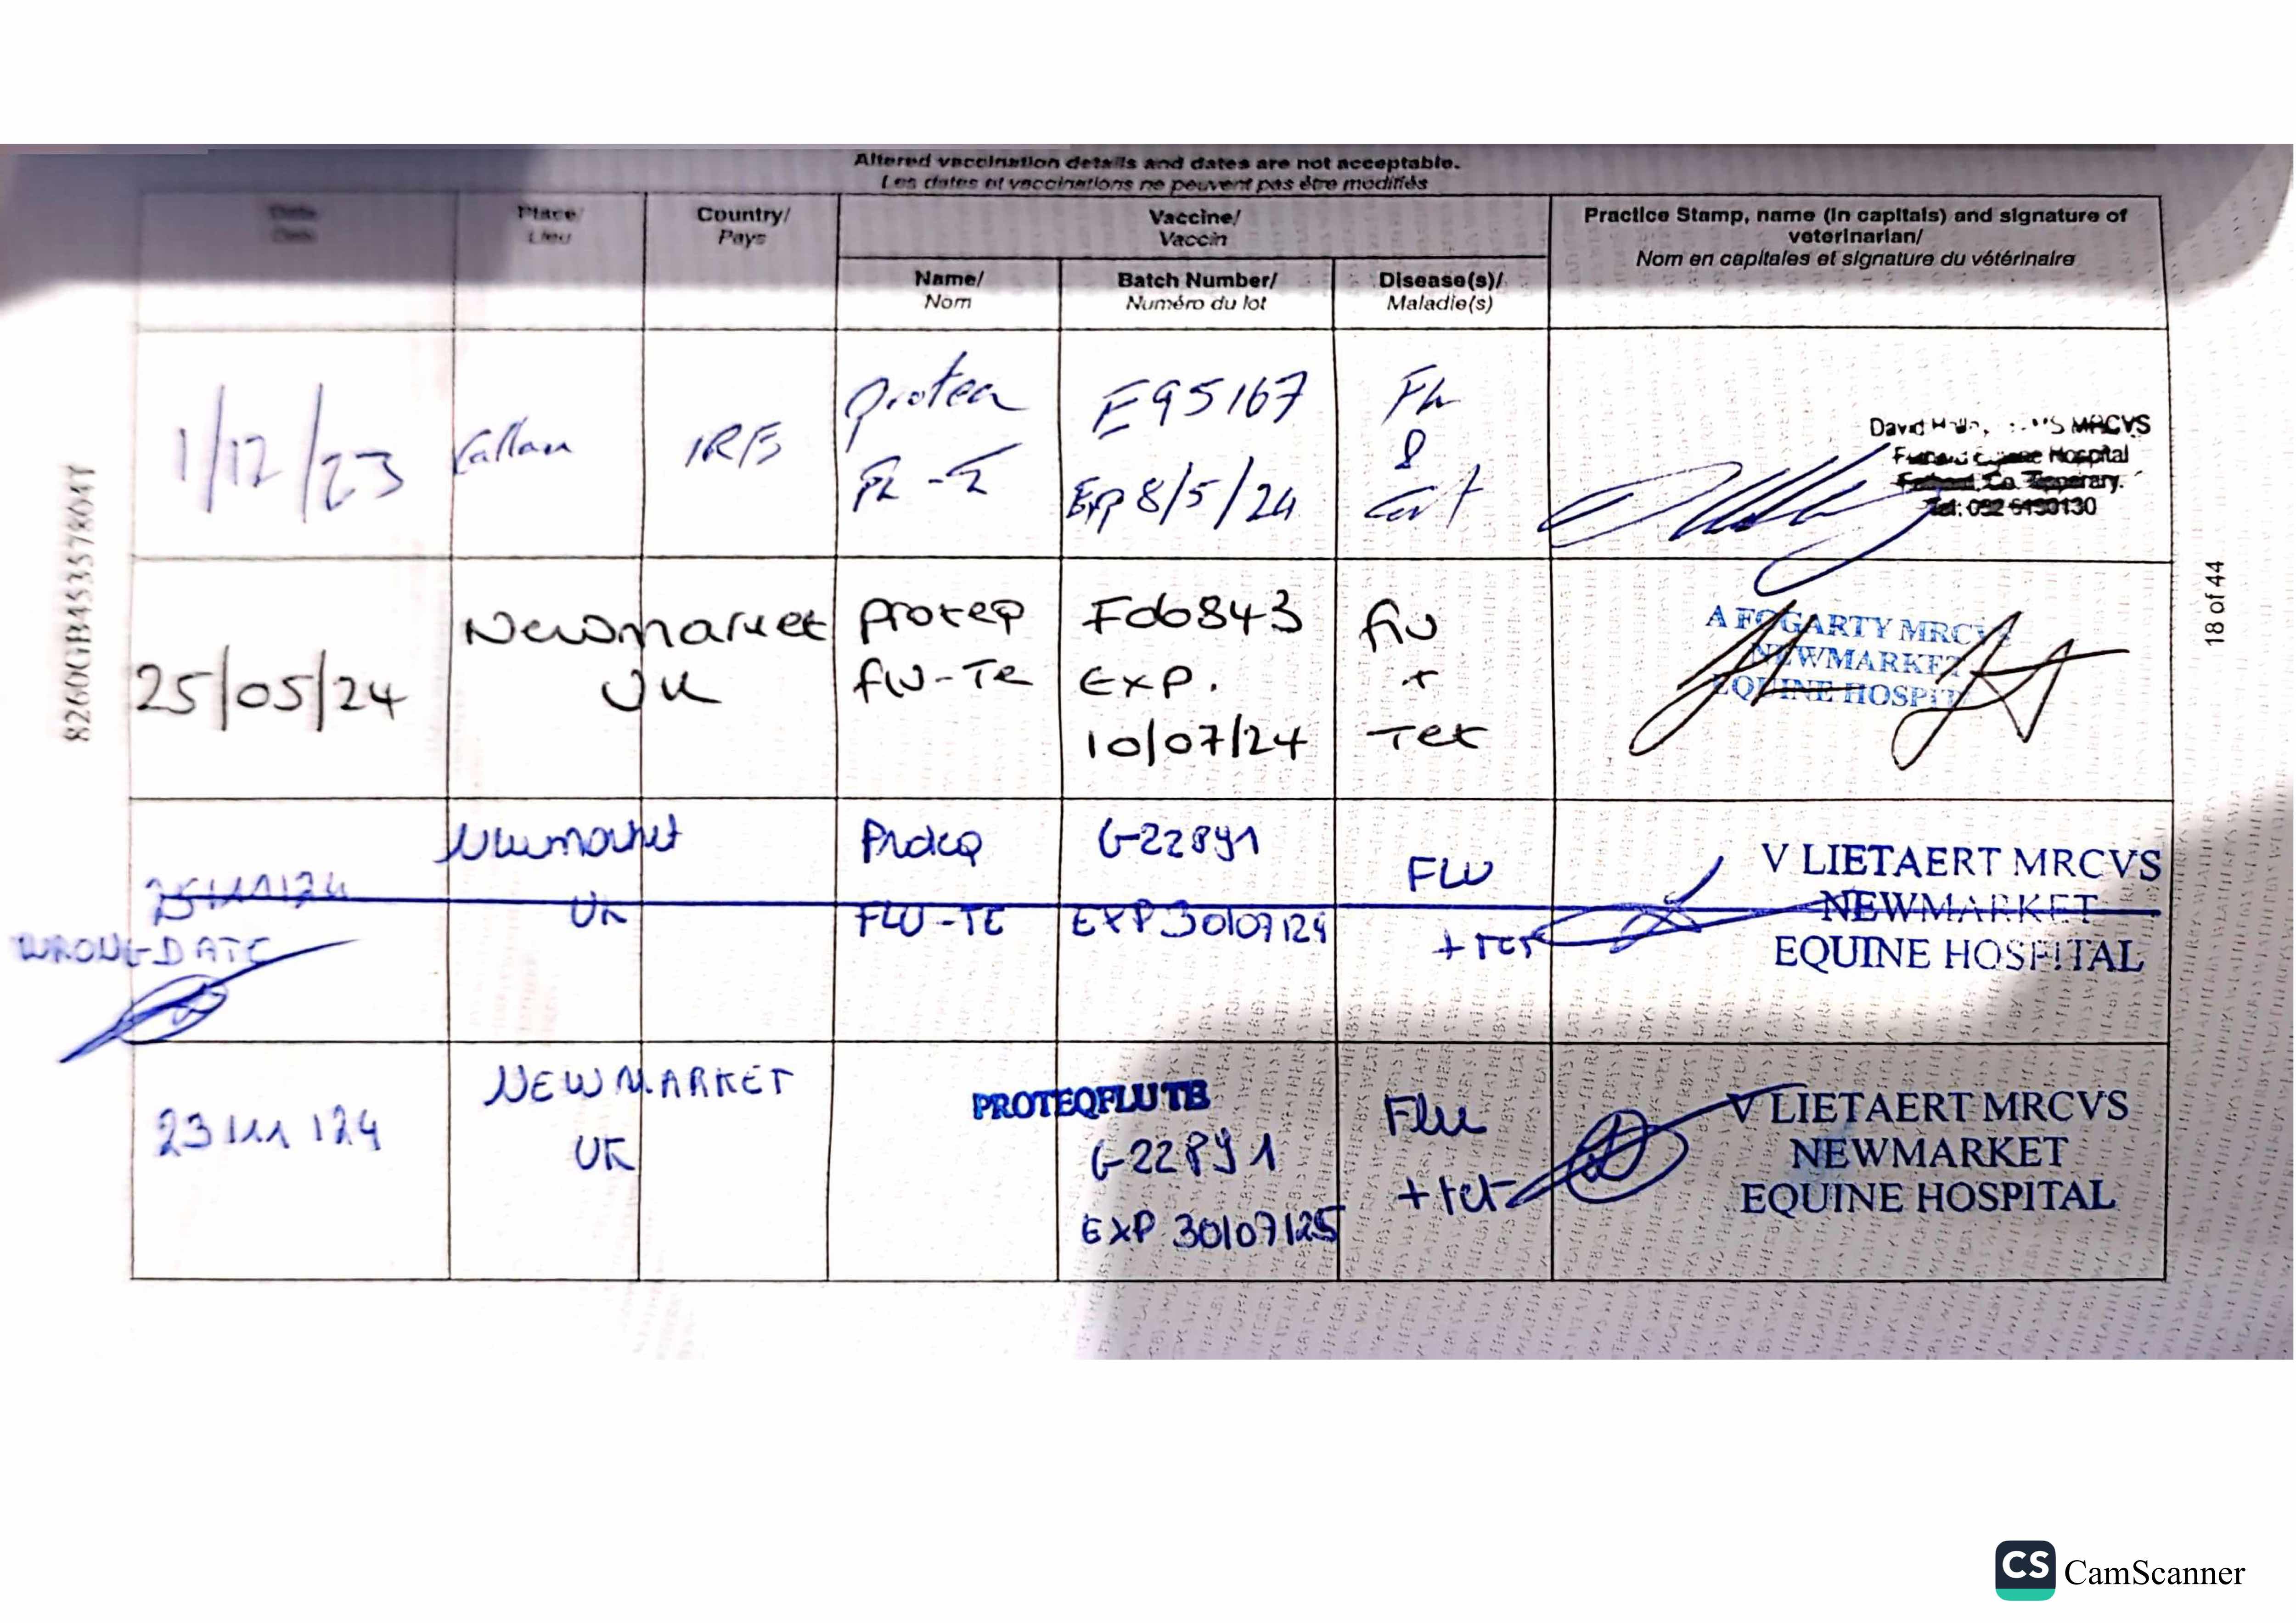 Altered vaccination details and dates are not acceptable.
Les dates et vaccinations ne peuvent pas être modifiés
Date/ Place/ Country/ Vaccine/ Practice Stamp, name (in capitals) and signature of
Date Lieu Pays Vaccin veterinarian/
Nom en capitales et signature du vétérinaire
Name/ Batch Number/ Disease(s)/
Nom Numéro du lot Maladie(s)
1/12/23 Callan IRE E95167 Flu
&
Exp 8/5/24
David MRCVS
Hospital
Co. Tipperary.
Tel: 052 6130130
25/05/24 Newmarket Proteq F06843 flu
UK flu-Te Exp. +
10/07/24 Tet
A FOGARTY MRCVS
NEWMARKET
EQUINE HOSPIT
25/11/24 Newmarket Proteq G22891 FLU
UK FLU-TE EXP 30/07/24 + tet
WRONG DATE
V LIETAERT MRCVS
NEWMARKET
EQUINE HOSPITAL
23/11/24 NEWMARKET PROTEQFLUTE Flu
UK G22891 + tet
EXP 30/07/25
V LIETAERT MRCVS
NEWMARKET
EQUINE HOSPITAL
18 of 44
CS CamScanner